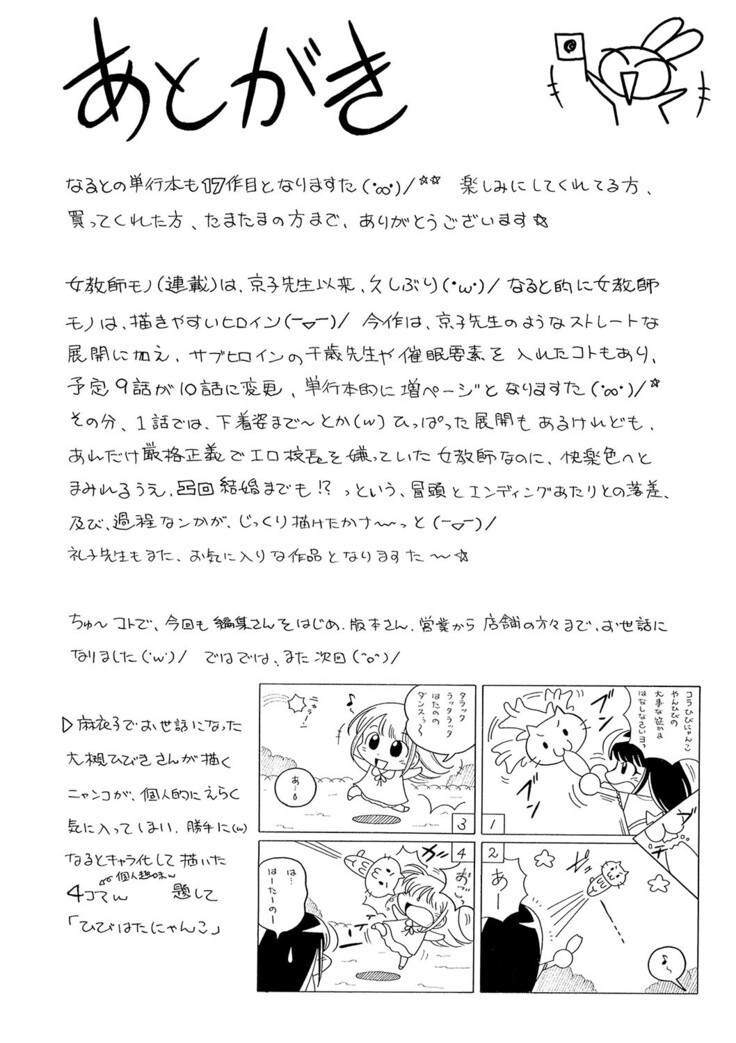 あとがき
なるとの単行本も17作目となりますた(・∞・)/☆☆ 楽しみにしてくれてる方、
買ってくれた方、たまたまの方まで、ありがとうございます☆
女教師モノ(連載)は、京子先生以来、久しぶり(・ω・)/ なると的に女教師
モノは、描きやすいヒロイン(ー▽ー)/ 今作は、京子先生のようなストレートな
展開に加え、サブヒロインの千歳先生や催眠要素を入れたコトもあり、
予定9話が10話に変更、単行本的に増ページとなりますた(・∞・)/☆
その分、1話では、下着姿まで〜とか(w) ひっぱった展開もあるけれども、
あれだけ厳格正義でエロ校長を嫌っていた女教師なのに、快楽色へと
まみれるうえ、回結婚までも!? っという、冒頭とエンディングあたりとの落差、
及び、過程なンかが、じっくり描けたかナ〜〜っと(ー▽ー)/
礼子先生もまた、お気に入りな作品となりますた〜☆
ちゅ〜コトで、今回も編集さんをはじめ、阪本さん、営業から店舗の方々まで、お世話に
なりました(・w・)/ ではでは、また次回(^o^)/
▷麻衣子でお世話になった
大槻ひびきさんが描く
ニャンコが、個人的にえらく
気に入ってしまい、勝手に(w)
なるとキャラ化して描いた
個人趣味w
4コマw 題して
「ひびはたにゃんこ」
コラひびにゃんこ
やんひびの
大事な協力を
はなしなさいヨっ
1
2
あー
♪〜
タラッタ
ラッタラッタ
はたのの
ダンスぅ〜
♪
ニャラー!
あー
3
4
おっ
は…
はーたーのー